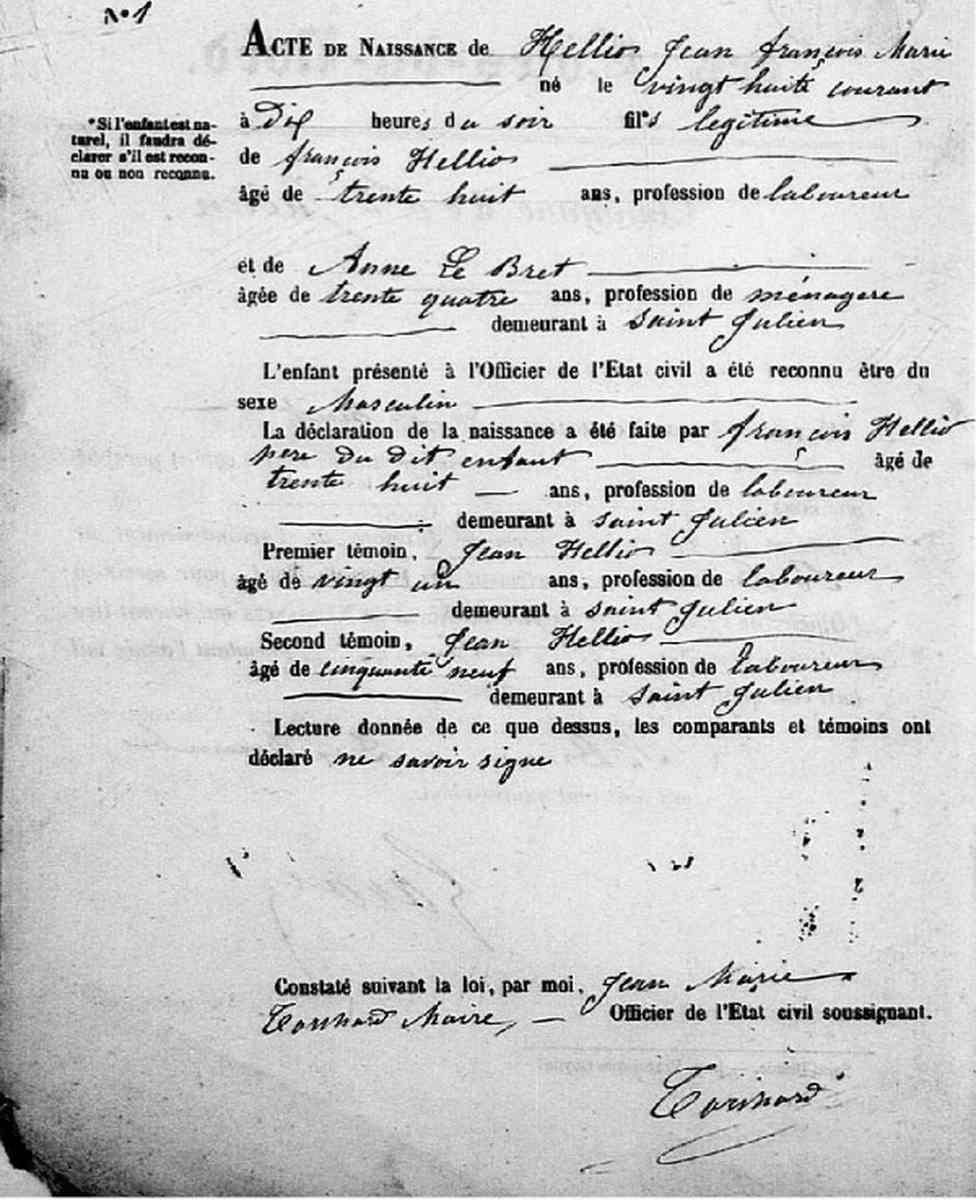 N° 1
ACTE DE NAISSANCE de Hellio Jean françois Marie
né le vingt huite courant
à Dix heures du soir fils legitime
*Si l'enfant est na-
turel, il faudra dé-
clarer s'il est recon-
nu ou non reconnu.
de françois Hellio
âgé de trente huit ans, profession de laboureur
et de Anne Le Bret
âgée de trente quatre ans, profession de ménagere
demeurant à Saint Julien
L'enfant présenté à l'Officier de l'Etat civil a été reconnu être du
sexe Masculin
La déclaration de la naissance a été faite par françois Hellio
pere du dit enfant âgé de
trente huit ans, profession de laboureur
demeurant à saint Julien
Premier témoin, Jean Hellio
âgé de vingt un ans, profession de laboureur
demeurant à saint Julien
Second témoin, Jean Hellio
âgé de cinquante neuf ans, profession de laboureur
demeurant à saint Julien
Lecture donnée de ce que dessus, les comparants et témoins ont
déclaré ne savoir signe
Constaté suivant la loi, par moi, Jean Marie
Maire, Officier de l'Etat civil soussignant.